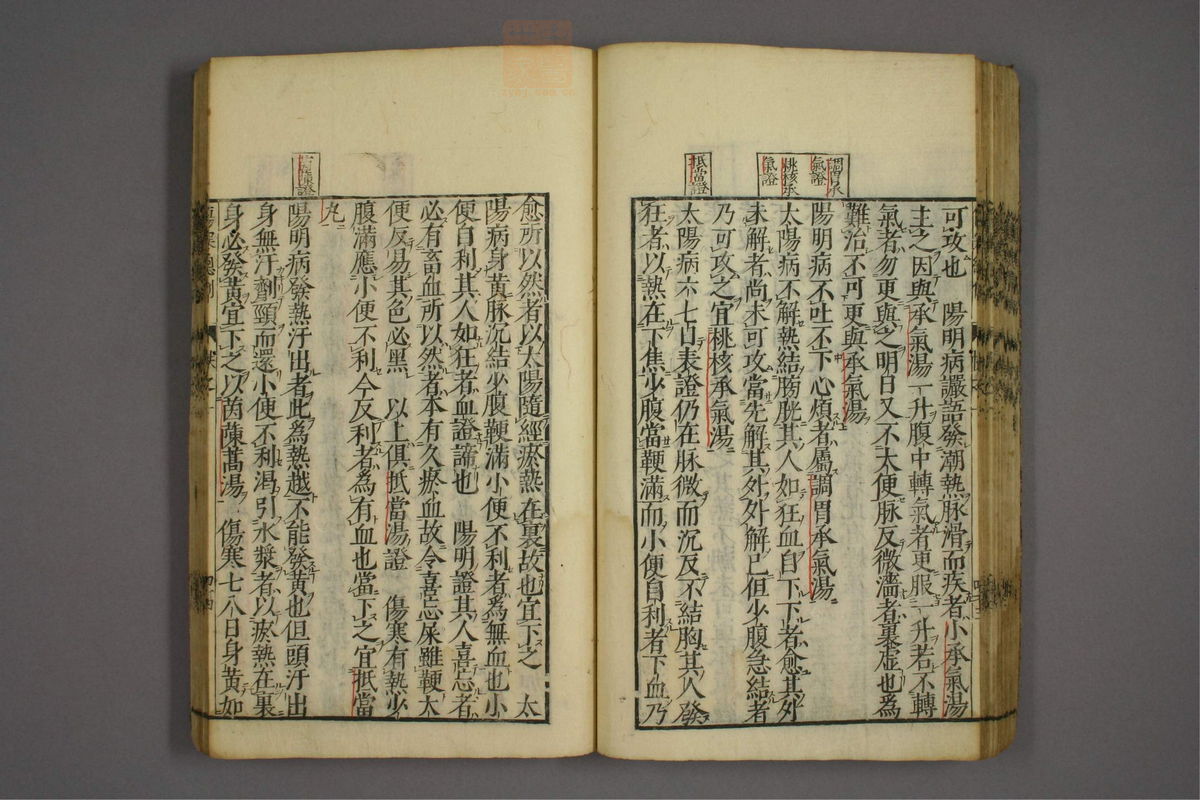 可攻也　陽明病讝語發潮熱脉滑而疾者小承氣湯
主之因與承氣湯一升腹中轉氣者更服一升若不轉
氣者勿更與之明日又不大便脉反微濇者裏虛也為
難治不可更與承氣湯
調胃承
氣證
陽明病不吐不下心煩者屬調胃承氣湯
桃核承
氣證
太陽病不解熱結膀胱其人如狂血自下下者愈其外
未解者尚未可攻當先解其外外解已但少腹急結者
乃可攻之宜桃核承氣湯
抵當證
太陽病六七日表證仍在脉微而沉反不結胸其人發
狂者以熱在下焦少腹當鞕滿而小便自利者下血乃
愈所以然者以太陽隨經瘀熱在裏故也宜下之　太
陽病身黃脉沉結少腹鞕滿小便不利者為無血也小
便自利其人如狂者血證諦也　陽明證其人喜忘者
必有畜血所以然者本有久瘀血故令喜忘屎雖鞕大
便反易其色必黑　以上俱抵當湯證　傷寒有熱少
腹滿應小便不利今反利者為有血也當下之宜抵當
丸
陽明病發熱汗出者此為熱越不能發黃也但頭汗出
身無汗劑頸而還小便不利渴引水漿者以瘀熱在裏
身必發黃宜下之以茵蔯蒿湯　傷寒七八日身黃如